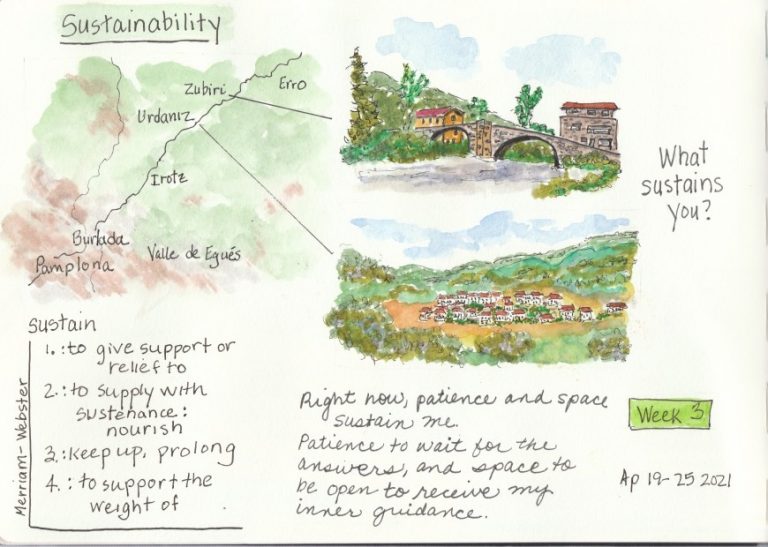 Sustainability
Zubiri
Erro
Urdaniz
Irotz
Burlada
Pamplona
Valle de Egués
What
sustains
you?
Sustain
1.: to give support or
relief to
2.: to supply with
sustenance:
nourish
3.: keep up, prolong
4.: to support the
weight of
Merriam-Webster
Right now, patience and space
sustain me.
Patience to wait for the
answers, and space to
be open to receive my
inner guidance.
Week 3
Ap 19-25 2021